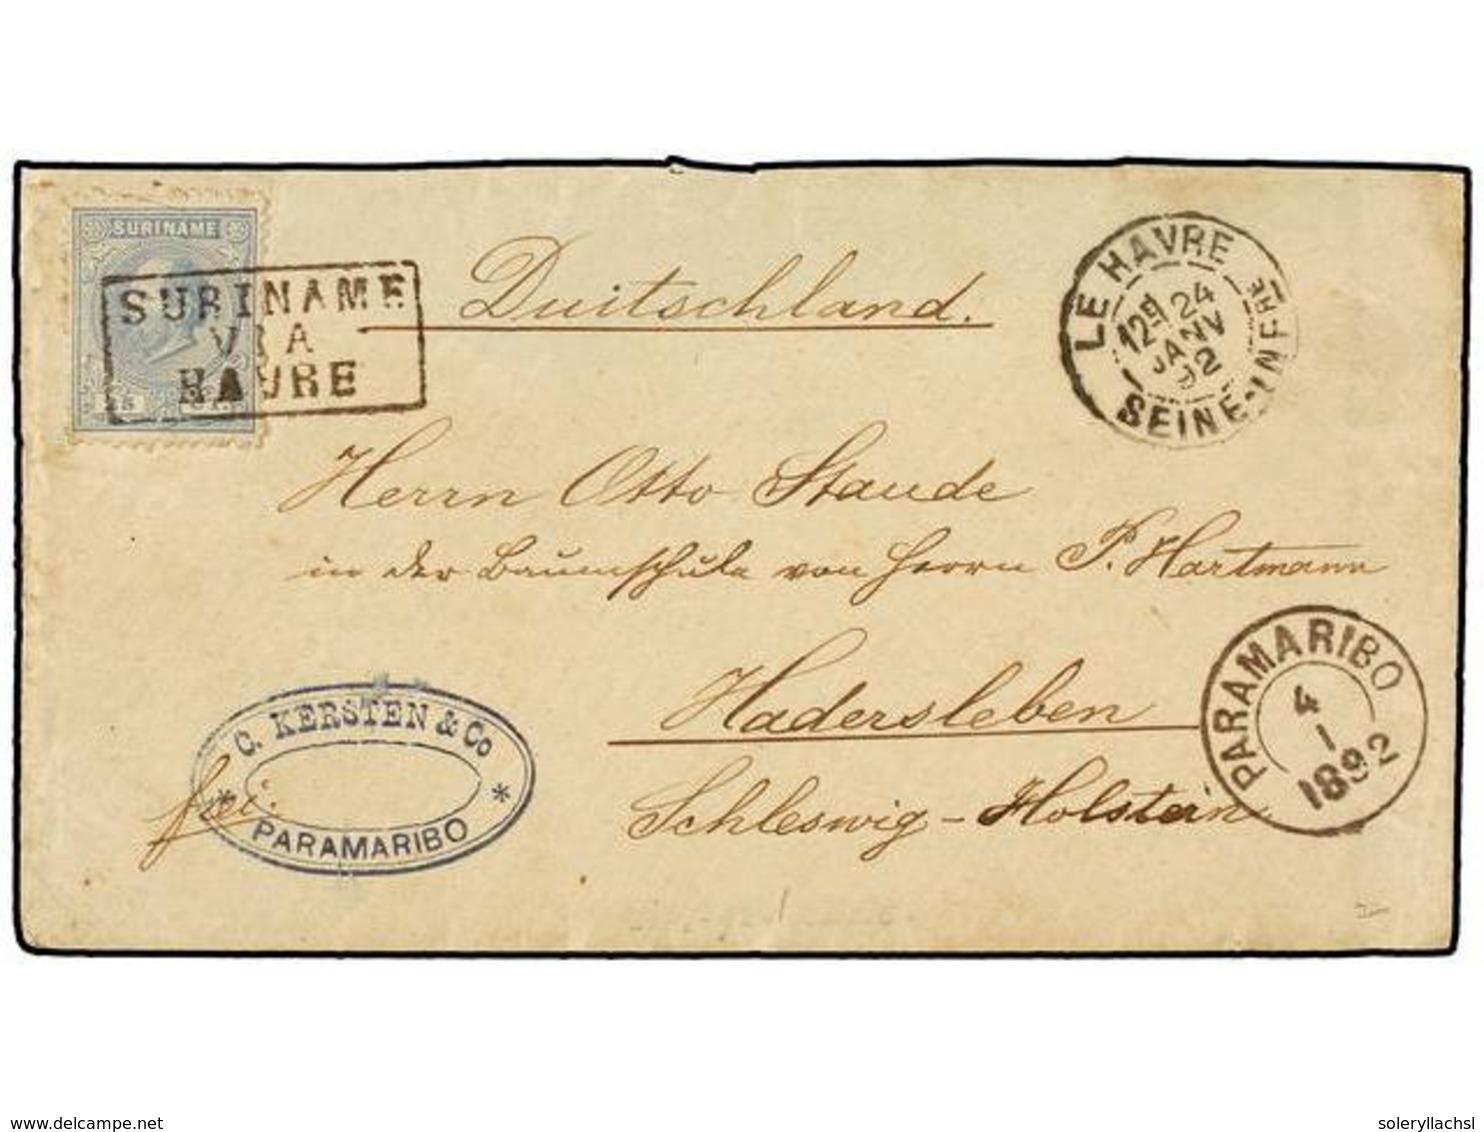 SURINAME
SURINAME
VIA
HAVRE
Duitschland.
LE HAVRE
24
JANV
92
SEINE-INFRE
Herrn Otto Staude
in der Baumschule von Herrn P. Hartmann
Hadersleben
Schleswig-Holstein
PARAMARIBO
4
1
1892
C. KERSTEN & Co
* *
PARAMARIBO
frei.
www.delcampe.net
soleryllachsl